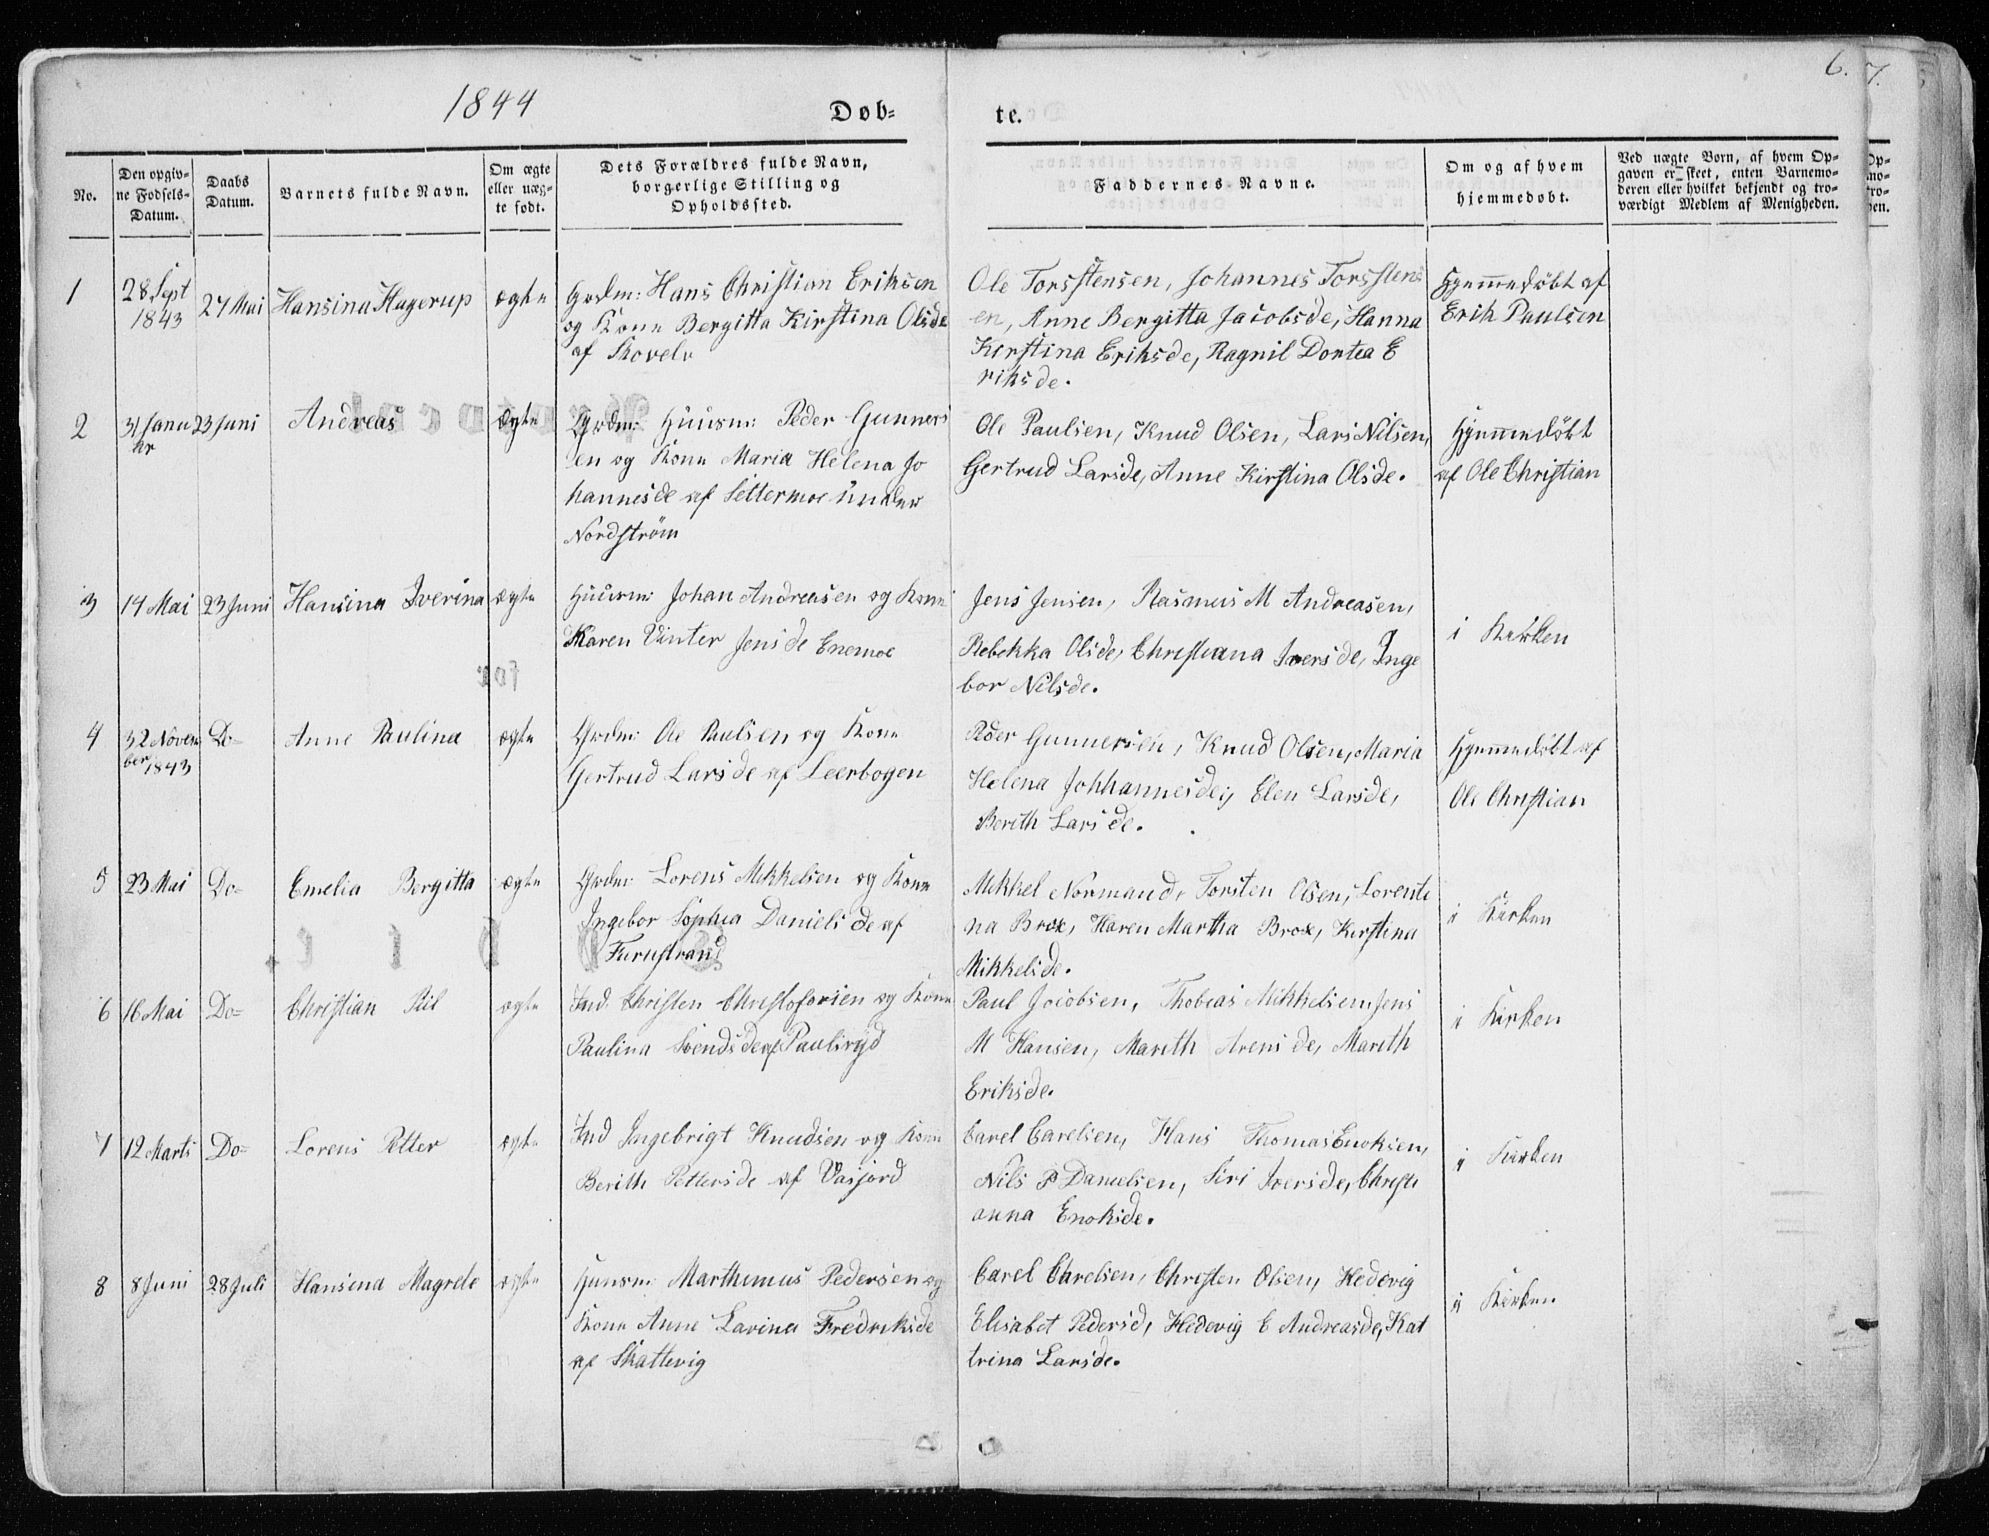 1844
Døb-
te.
6.
7.
No.
Den opgiv-
ne Fødsels-
Datum.
Daabs
Datum.
Barnets fulde Navn.
Om ægte
eller uæg-
te født.
Dets Forældres fulde Navn,
borgerlige Stilling og
Opholdssted.
Faddernes Navne.
Om og af hvem
hjemmedøbt.
Ved uægte Børn, af hvem Op-
gaven er skeet, enten Barnemo-
deren eller hvilket bekjendt og tro-
værdigt Medlem af Menigheden.
1
28 Sept
1843
27 Mai
Hansina Hagerup
ægte
Grdm: Hans Christian Eriksen
og Kone Bergitta Kirstina Olsde
af Skovelv
Ole Torsstensen, Johannes Torsstens
en, Anne Bergitta Jacobsde, Hanna
Kirstina Eriksde, Ragnil Dortea E
riksde.
Hjemmedøbt af
Erik Paulsen
2
31 Janu
ar
23 Juni
Andreas
Ægte
Huusm: Peder Gunners
en og Kone Maria Helena Jo
hannesde af Settermoe under
Nordstrøm
Ole Paulsen, Knud Olsen, Lars Nilsen,
Gertrud Larsde, Anne Kirstina Olsde.
Hjemmedøbt
af Ole Christian
3
14 Mai
23 Juni
Hansina Iverina
ægte
Huusm: Johan Andreasen og Kone
Karen Vinter Jensde Enemoe
Jens Jensen, Rasmus M Andreasen,
Rebekka Olsde, Christiana Iversde, Inge
bor Nilsde.
i Kirken
4
32 Novem
ber 1843
Do=
Anne Paulina
ægte
Grdm: Ole Paulsen og Kone
Gertrud Larsde af Leerbogen
Peder Gunnersen, Knud Olsen, Maria
Helena Johhannesde, Elen Larsde,
Berith Larsde.
Hjemmedøbt af
Ole Christian
5
23 Mai
Do=
Emelia Bergitta
ægte
Grdm: Lorens Mikkelsen og Kone
Ingebor Sophia Danielsde af
Furustrand
Mikkel Normand, Torsten Olsen, Lorenti
na Brox, Haren Martha Brox, Kirstina
Mikkelsde.
i Kirken
6
16 Mai
Do=
Christian Piil
ægte
Ind. Christen Christofersen og Kone
Paulina Svendsde af Paulsryd
Paul Jocobsen, Thobias Mikkelsen, Jens
M Hansen, Marith Arensde, Marith
Eriksde.
i Kirken
7
12 Marts
Do=
Lorens Petter
ægte
Ind Ingebrigt Knudsen og Kone
Berith Pettersde af Vasjord
Carel Carelsen, Hans Thomas Enoksen,
Nils P Danielsen, Siri Iversde, Christi
anna Enoksde.
i Kirken
8
8 Juni
28 Juli
Hansina Magrete
ægte
Huusm: Marthinus Pedersen og
Kone Anne Lavina Fredriksde
af Skattevig
Carel Carelsen, Christen Olsen, Hedevig
Elisabet Pedersd, Hedevig E Andreasde, Kat
trina Larsde.
i Kirken